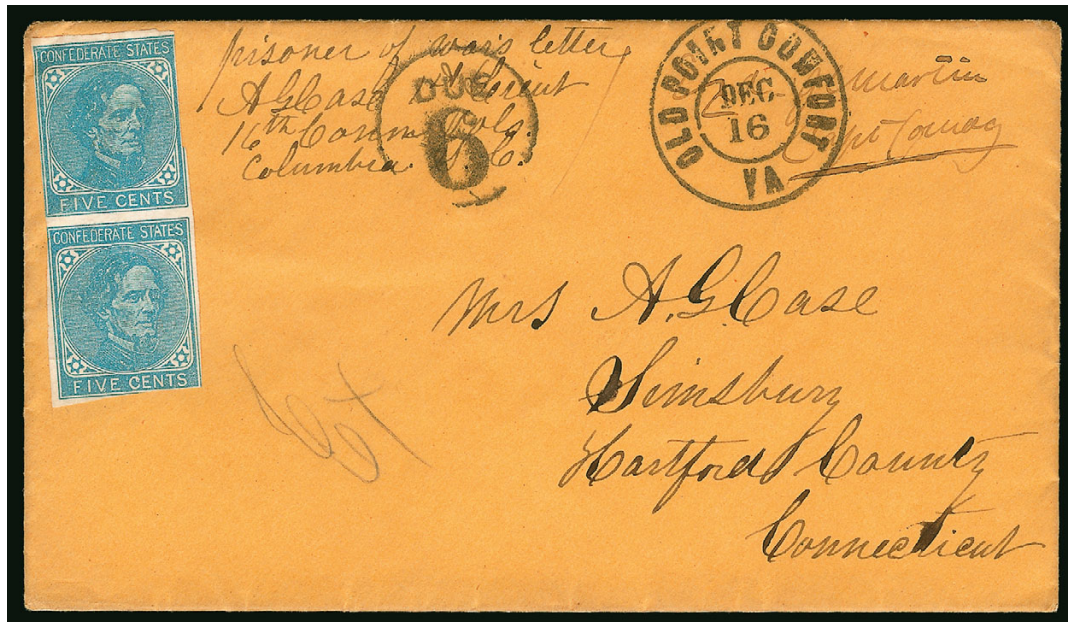 CONFEDERATE STATES
FIVE CENTS
CONFEDERATE STATES
FIVE CENTS
prisoner of wars letter
A G Case Lieut
16th Conn Vols.
Columbia S.C.
DUE
6
OLD POINT COMFORT
DEC
16
VA
Martin
Mrs A. G. Case
Simsbury
Hartford County
Connecticut